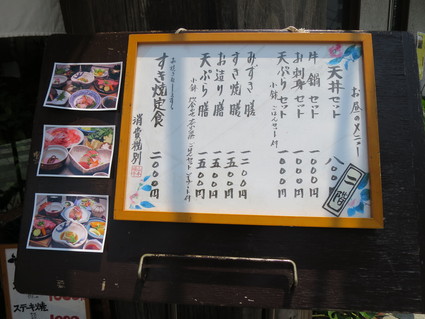 お昼のメニュー
天丼セット 八〇〇
二階
牛鍋セット 一〇〇〇円
お刺身セット 一〇〇〇円
天ぷらセット 一〇〇〇円
みずき膳 一二〇〇円
すき焼膳 一五〇〇円
お造り膳 一五〇〇円
天ぷら膳 一五〇〇円
すき焼定食 二〇〇〇円
消費税別
ステーキ焼